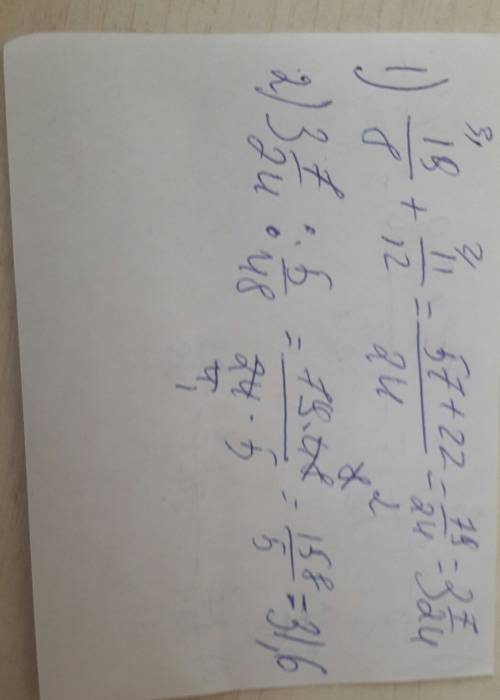 1) 19/8 (3) + 11/12 (2) = (57+22)/24 = 79/24 = 3 7/24
2) 3 7/24 : 5/48 = (79·48)/(24·5) = 158/5 = 31,6